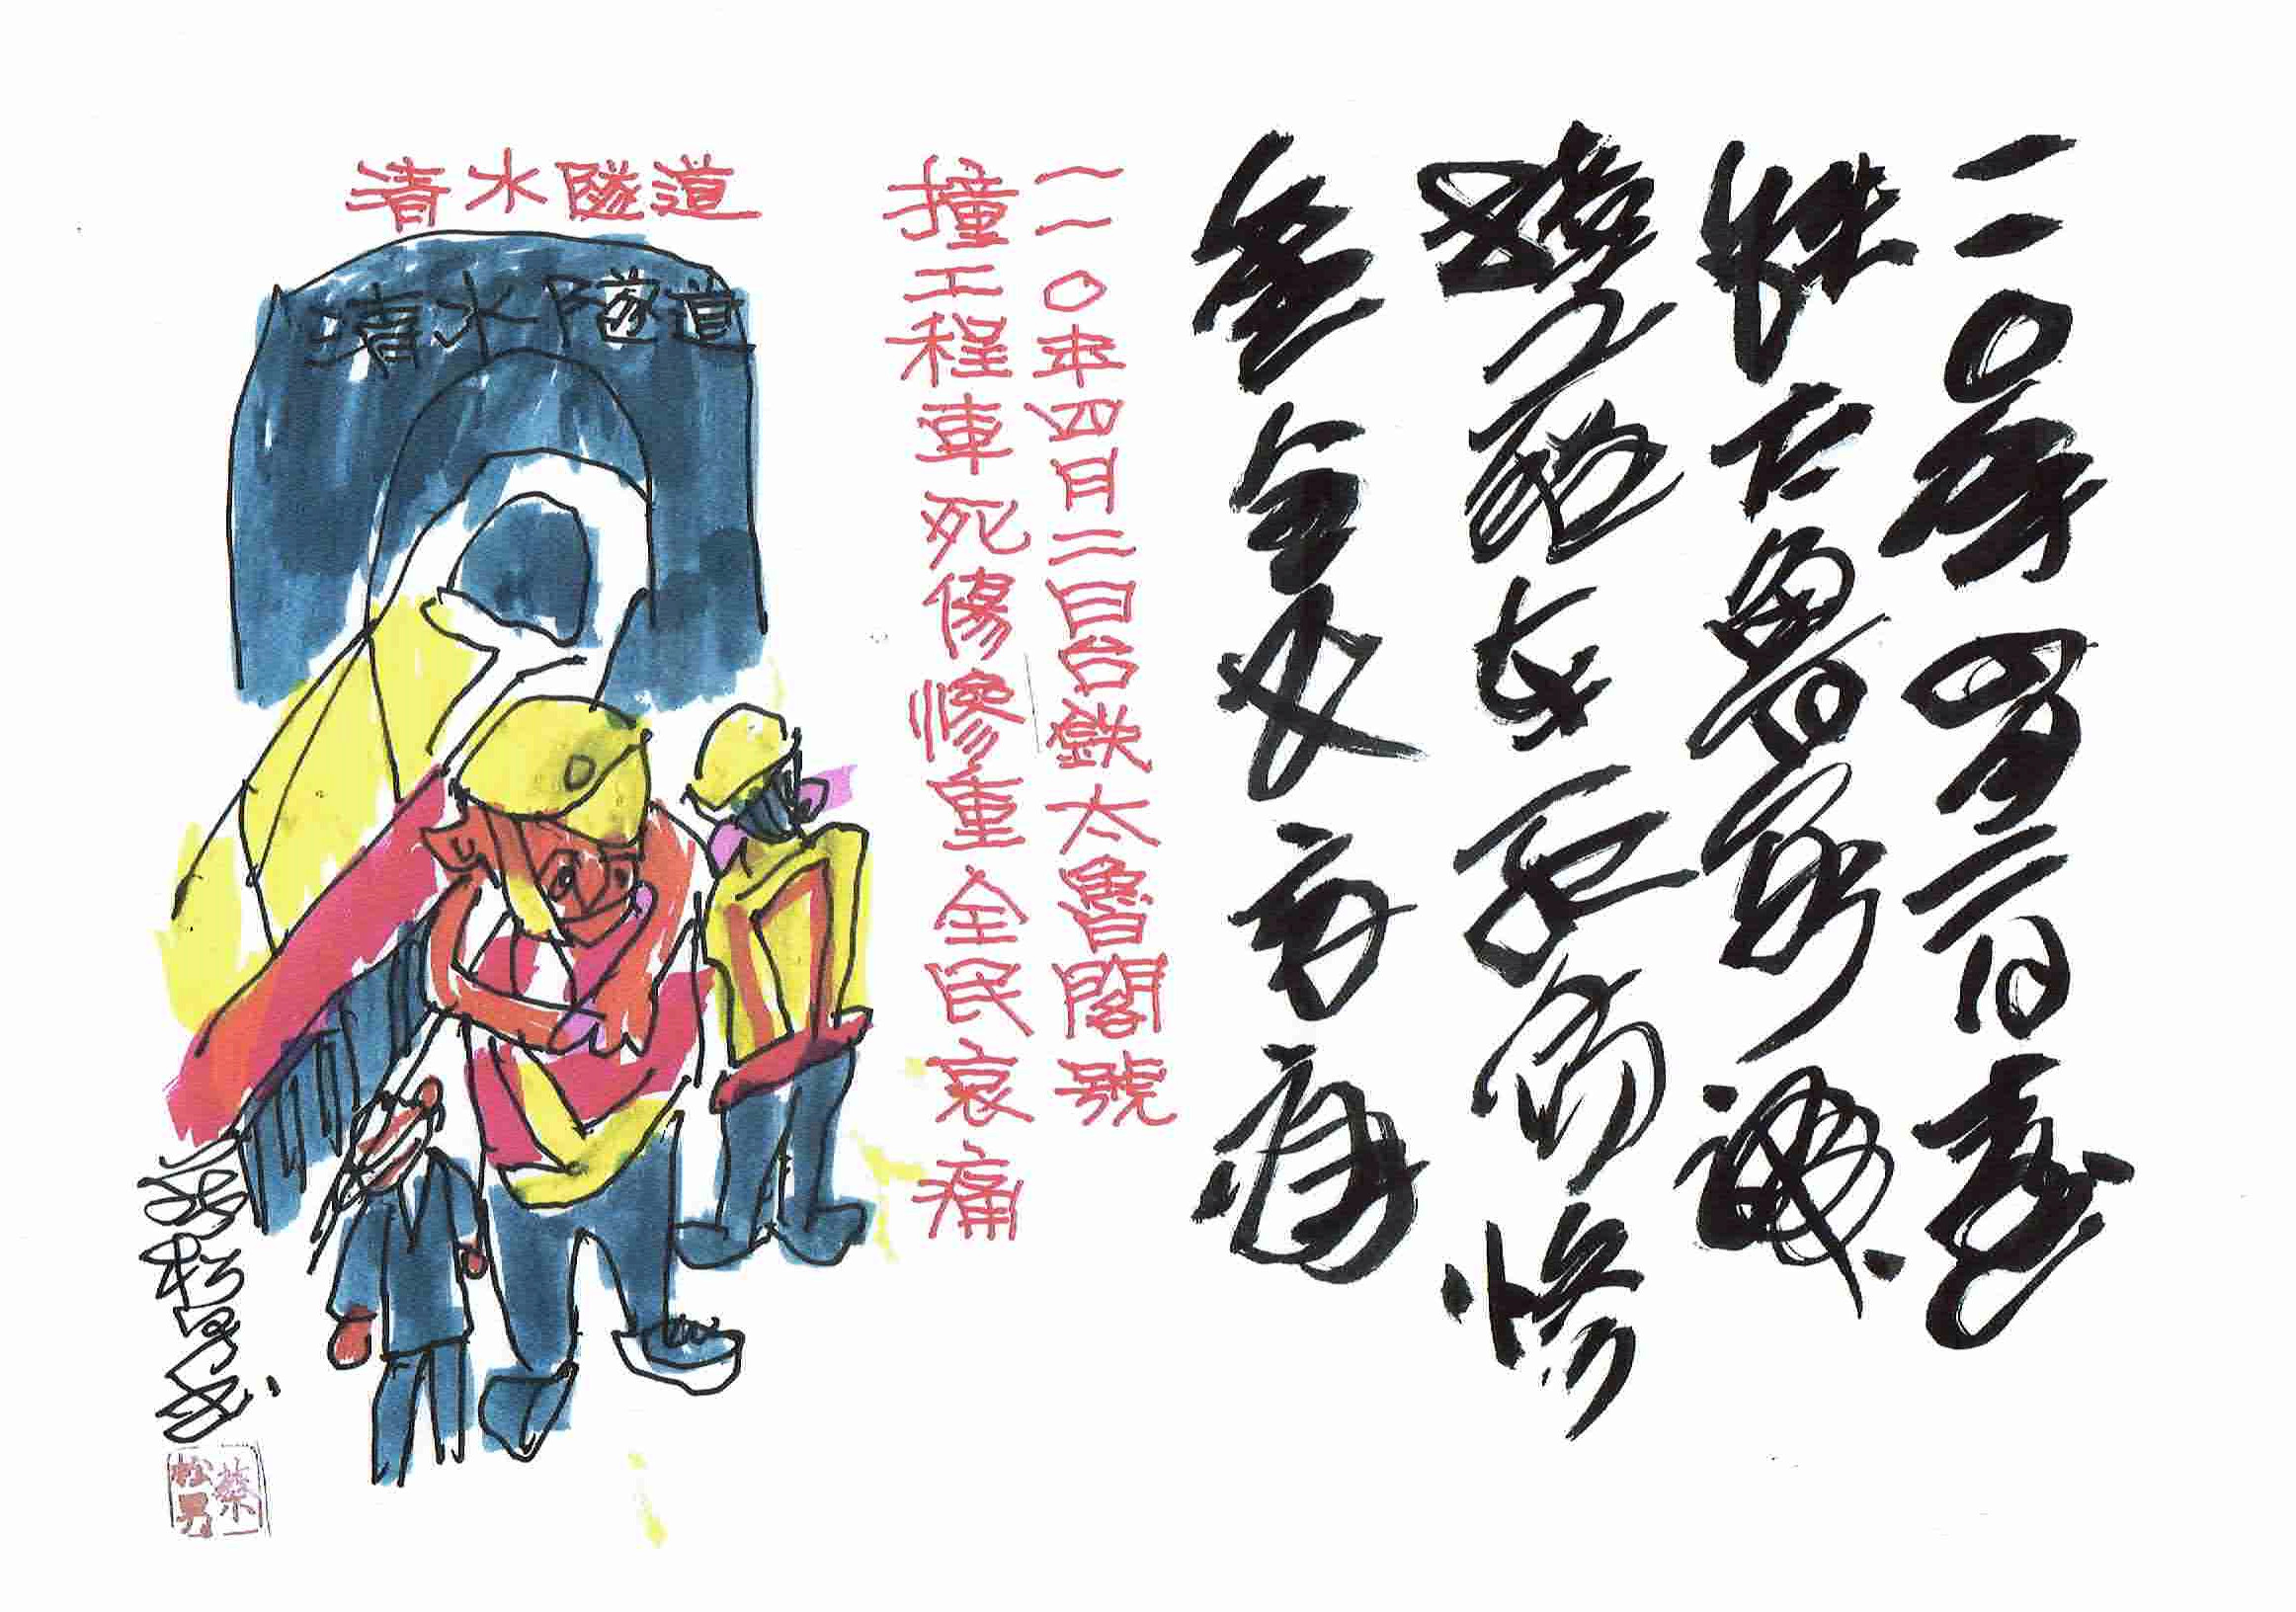 一一〇年四月二日台
鉄太魯閣號
撞工程車死傷慘
重全民哀痛
一一〇年四月二日台鉄太魯閣號
撞工程車死傷慘重全民哀痛
清水隧道
清水隧道
蔡松男
蔡松男